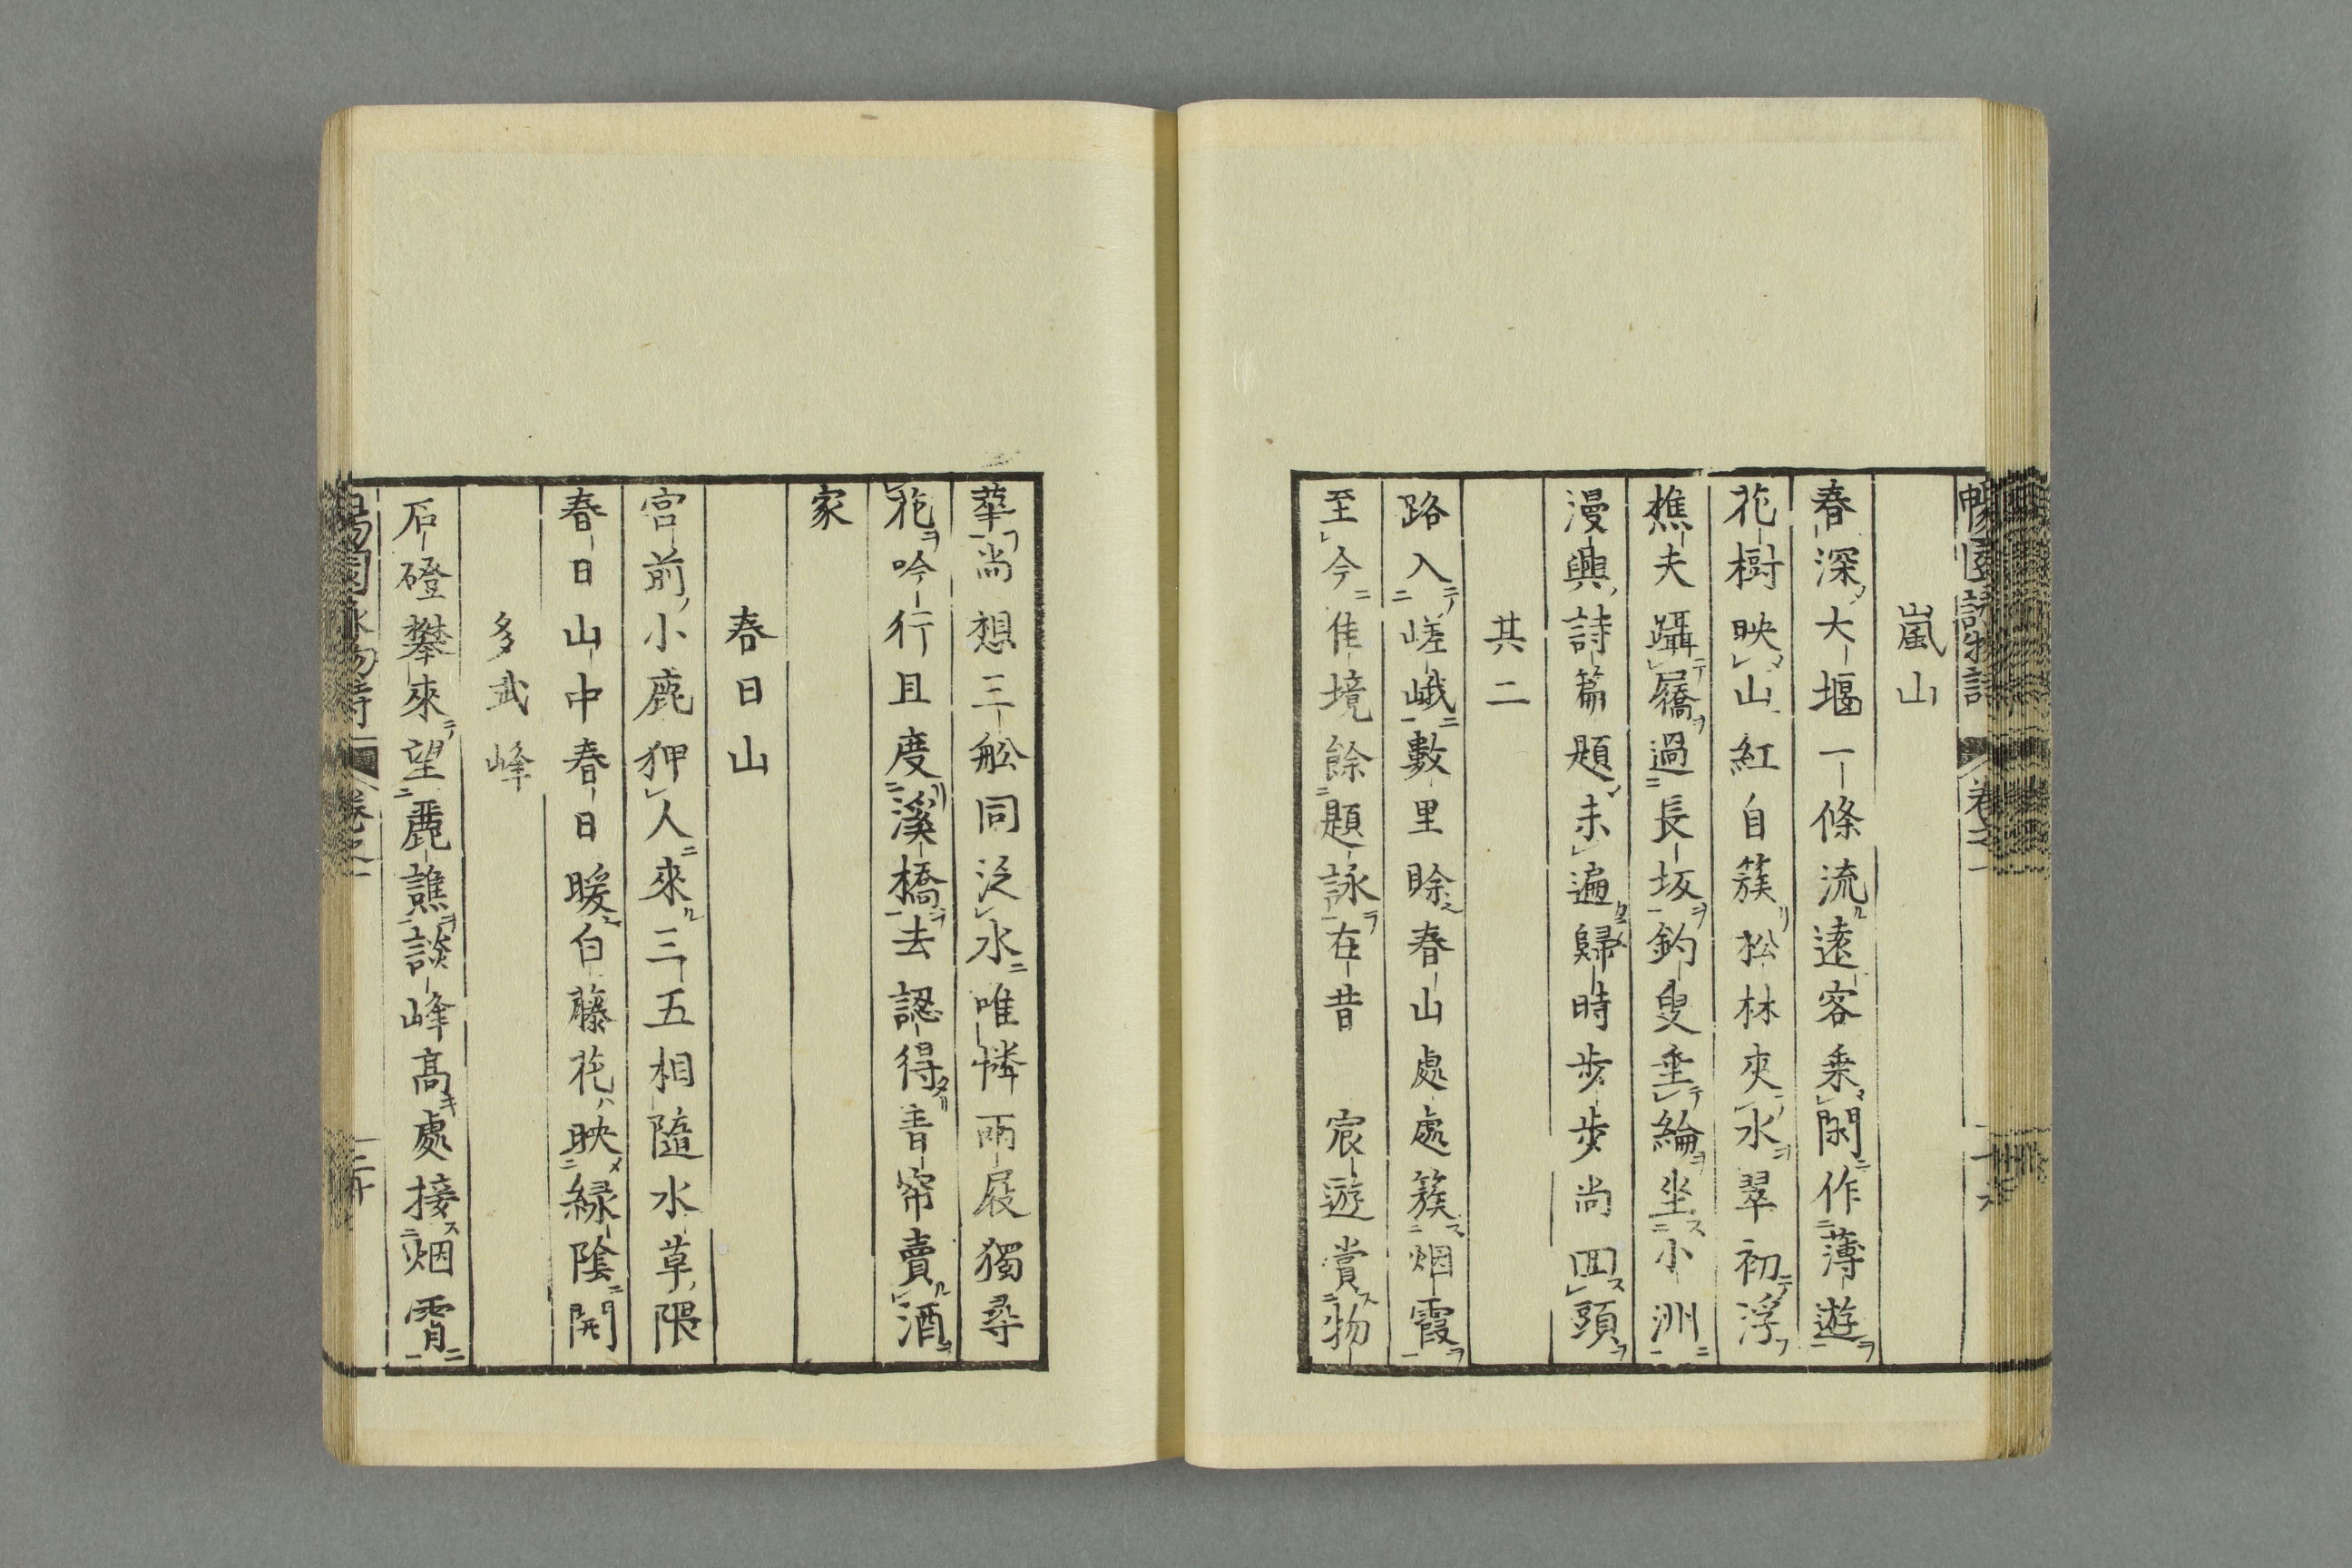 嵐山
春深大堰一條流遠客乘閑作薄遊
花樹映山紅自簇松林夾水翠初浮
樵夫躡屩過長坂釣叟垂綸坐小洲
漫興詩篇題未遍歸時步步尚回頭
其二
路入嵯峨數里賒春山處處簇烟霞
至今佳境餘題詠在昔 宸遊賞物
華尚想三舩同泛水唯憐兩屐獨尋
花吟行且度溪橋去認得青帘賣酒
家
春日山
宮前小鹿狎人來三五相隨水草隈
春日山中春日暖白藤花映緑陰開
多武峰
石磴攀來望麗譙談峰高處接烟霄